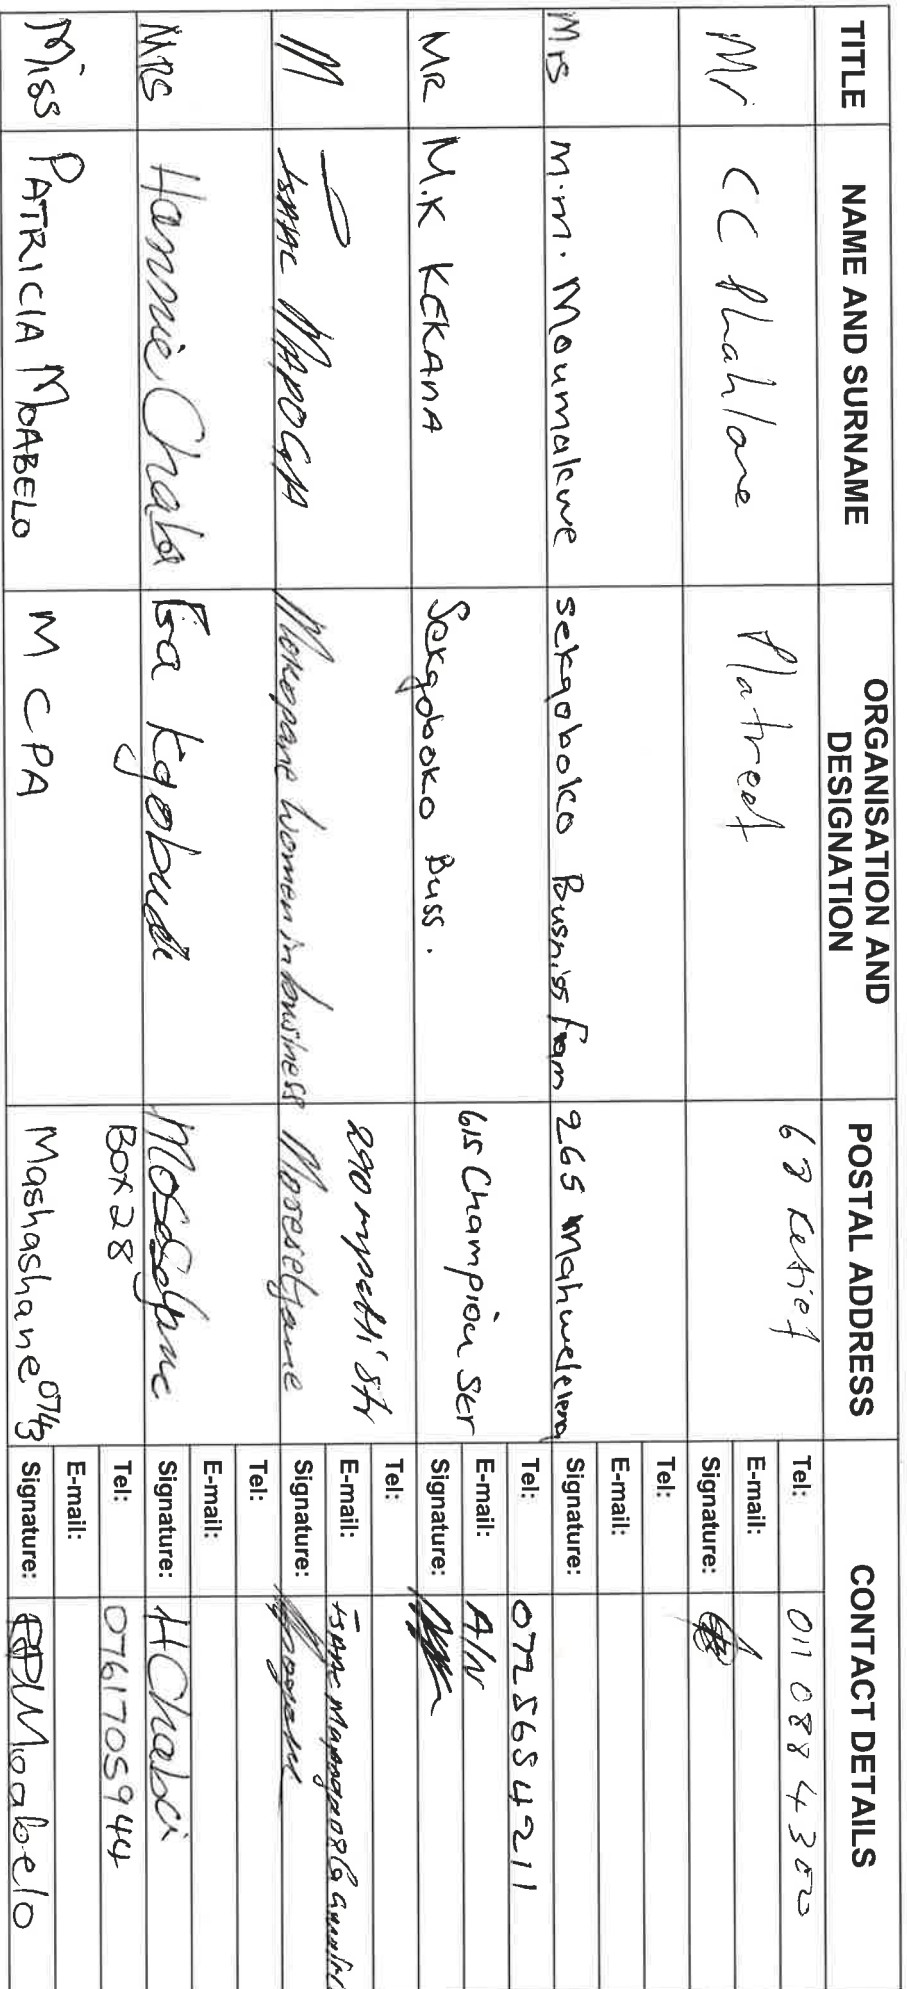 TITLE NAME AND SURNAME ORGANISATION AND DESIGNATION POSTAL ADDRESS CONTACT DETAILS
Mr CC Phahlane Platreef 62 Retief Tel: 011 088 4300
E-mail:
Signature:
Mrs M.M. Moumakwe sekgoboko Busniss 265 Mahwelereng Tel:
E-mail:
Signature:
MR M.K KEKANA Sekgoboko Buss. 615 Champion Ser Tel: 0725654211
E-mail: A/N
Signature:
ISAAC MAPOGA Mokopane Women in business Moresetjane Tel:
E-mail:
Signature:
MRS Hannie Chaba Ga Kgobudi Tel:
E-mail:
Signature: HChaba
Miss PATRICIA MOABELO M CPA Box 28 Mashashane 0743 Tel: 0761705944
E-mail:
Signature: PMoabelo